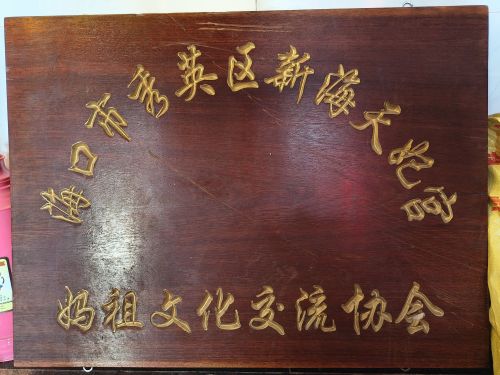 海口市秀英区新海天妃宫
妈祖文化交流协会